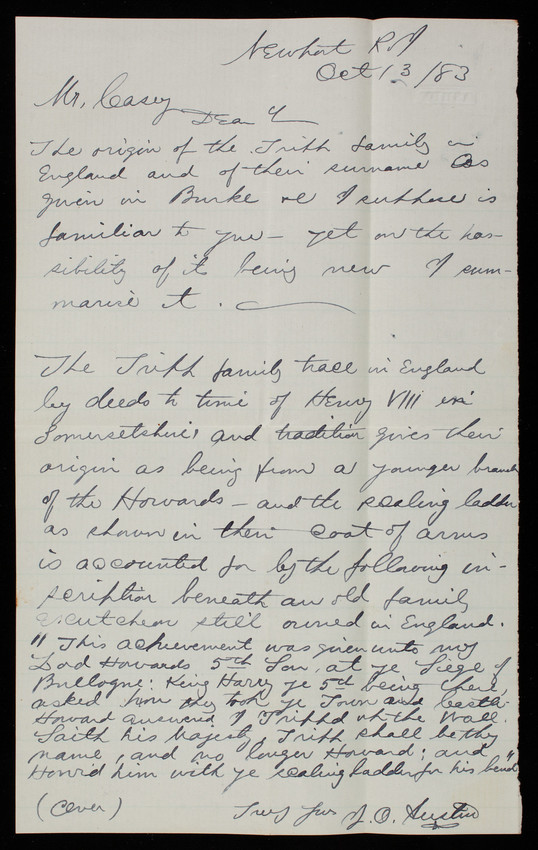 Newport R I
Oct 13/83
Mr. Casey
Dear
The origin of the Tripp family in
England and of their surname as
given in Burke &c I suppose is
familiar to you — yet on the pos-
sibility of its being new I sum-
marise it.
The Tripp family trace in England
by deeds to time of Henry VIII in
Somersetshire, and tradition gives their
origin as being from a younger branch
of the Howards — and the scaling ladder
as shown in their coat of arms
is accounted for by the following in-
scription beneath an old family
escutcheon still owned in England.
"This achievement was given unto my
Lord Howards 5th Son, at ye Siege of
Bullogne: King Harry ye 5th being there,
asked how they took ye Town and Castle.
Howard answered, I Tripp'd up the Wall.
Saith his Majesty, Tripp shall be thy
name, and no longer Howard; and
Honr'd him with ye scaling ladder for his bend"
(Over) Truly Yours J. O. Austin